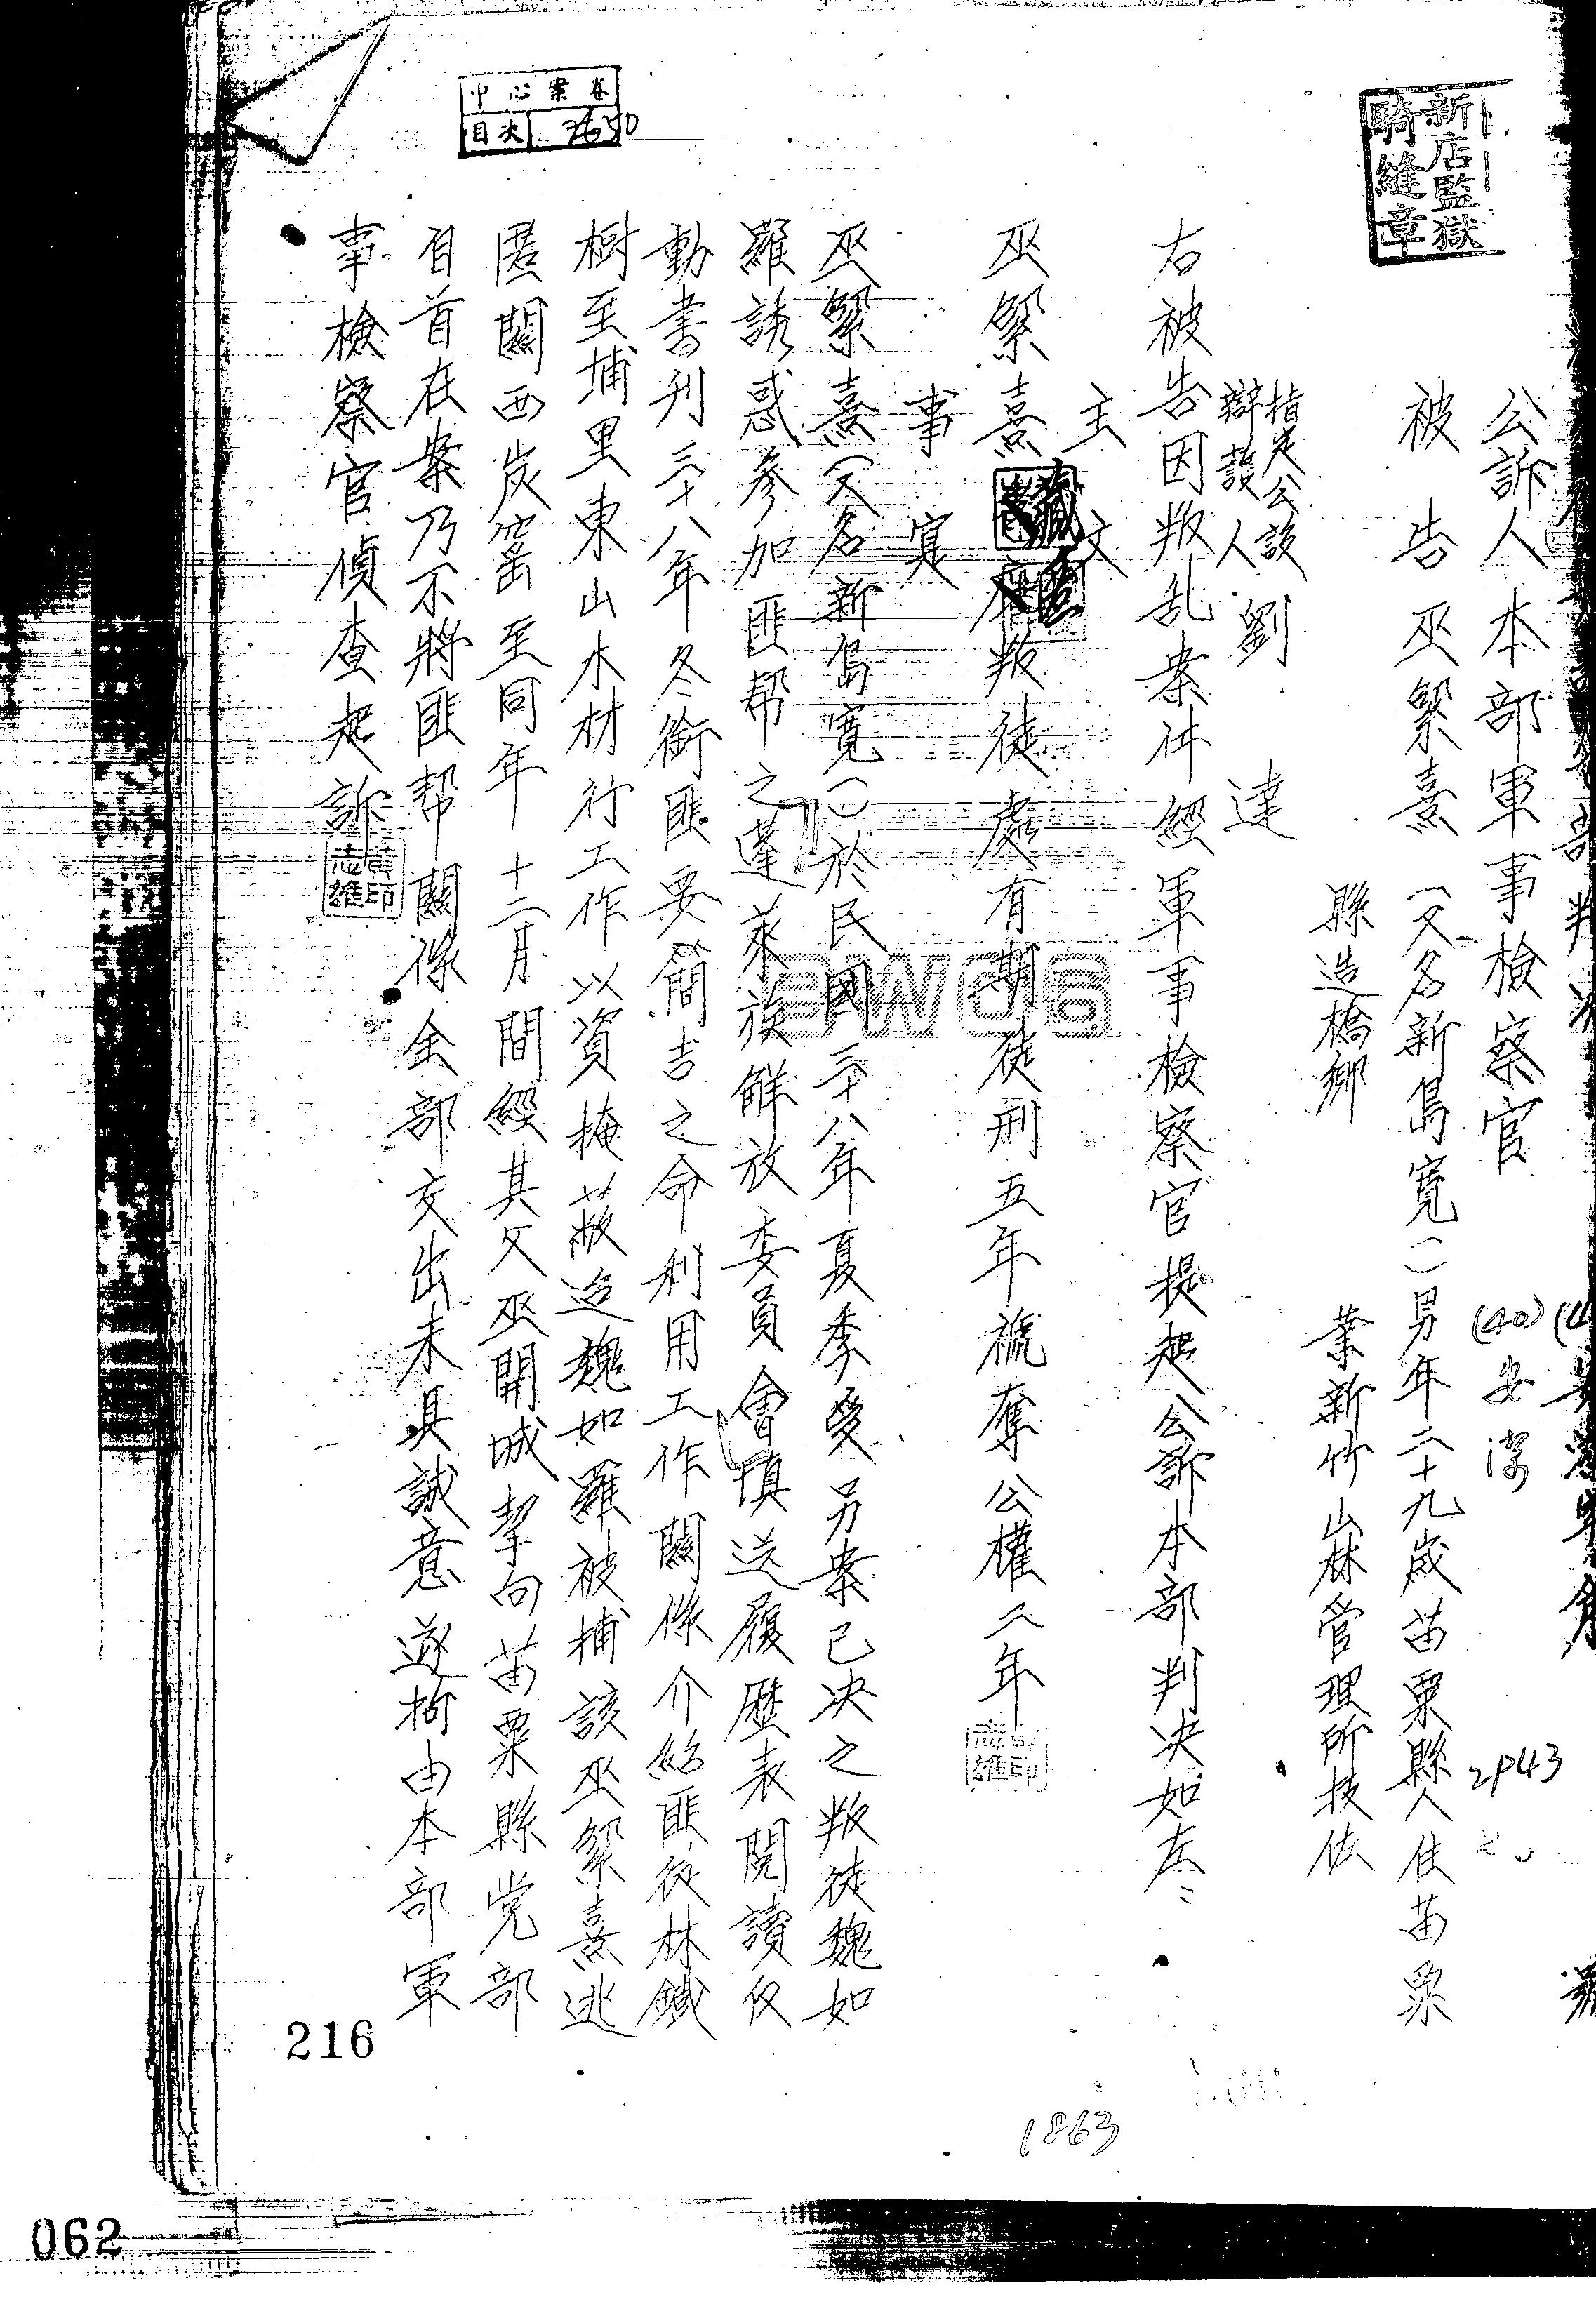 中心案卷
目次 3650
新店監獄
騎縫章
(40)安潔
2943
公訴人本部軍事檢察官
被告巫絜熹(又名新島寬一)男年二十九歲苗栗縣人住苗栗
縣造橋鄉 業新竹山林管理所技佐
指定公設
辯護人 劉達
右被告因叛乱案件經軍事檢察官提起公訴本部判决如左
主文
巫絜熹藏匿叛徒處有期徒刑五年褫奪公權二年
事实
巫絜熹(又名新島寬一)於民國三十八年夏季受另案已决之叛徒魏如
羅誘惑參加匪帮之蓬萊族解放委員會填送履歷表閱讀反
動書刊三十八年冬銜匪要簡吉之命利用工作關係介紹匪徒林鐵
樹至埔里東山木材行工作以資掩蔽迨魏如羅被捕該巫絜熹逃
匿關西炭窑至同年十二月間經其父巫開城挈向苗栗縣党部
自首在案乃不將匪帮關係全部交出未具誠意遂拘由本部軍
事檢察官偵查起訴
黃印
志雄
216
1863
062